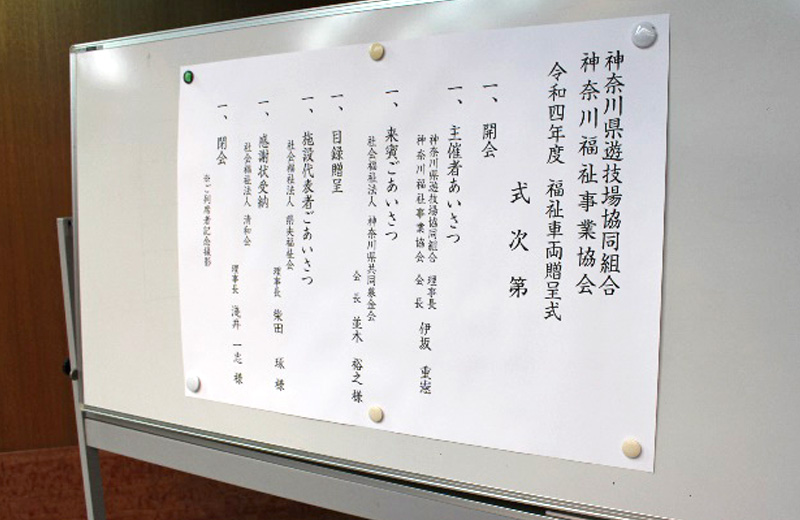 神奈川県遊技場協同組合
神奈川福祉事業協会
令和四年度 福祉車両贈呈式
式次第
一、開会
一、主催者あいさつ
神奈川県遊技場協同組合 理事長 伊坂 重憲
神奈川福祉事業協会 会長
一、来賓ごあいさつ
社会福祉法人 神奈川県共同募金会
会長 並木 裕之 様
一、目録贈呈
一、施設代表者ごあいさつ
社会福祉法人 県央福祉会
理事長 柴田 琢 様
一、感謝状受納
社会福祉法人 清和会
理事長 浅井 一志 様
一、閉会
※ご列席者記念撮影